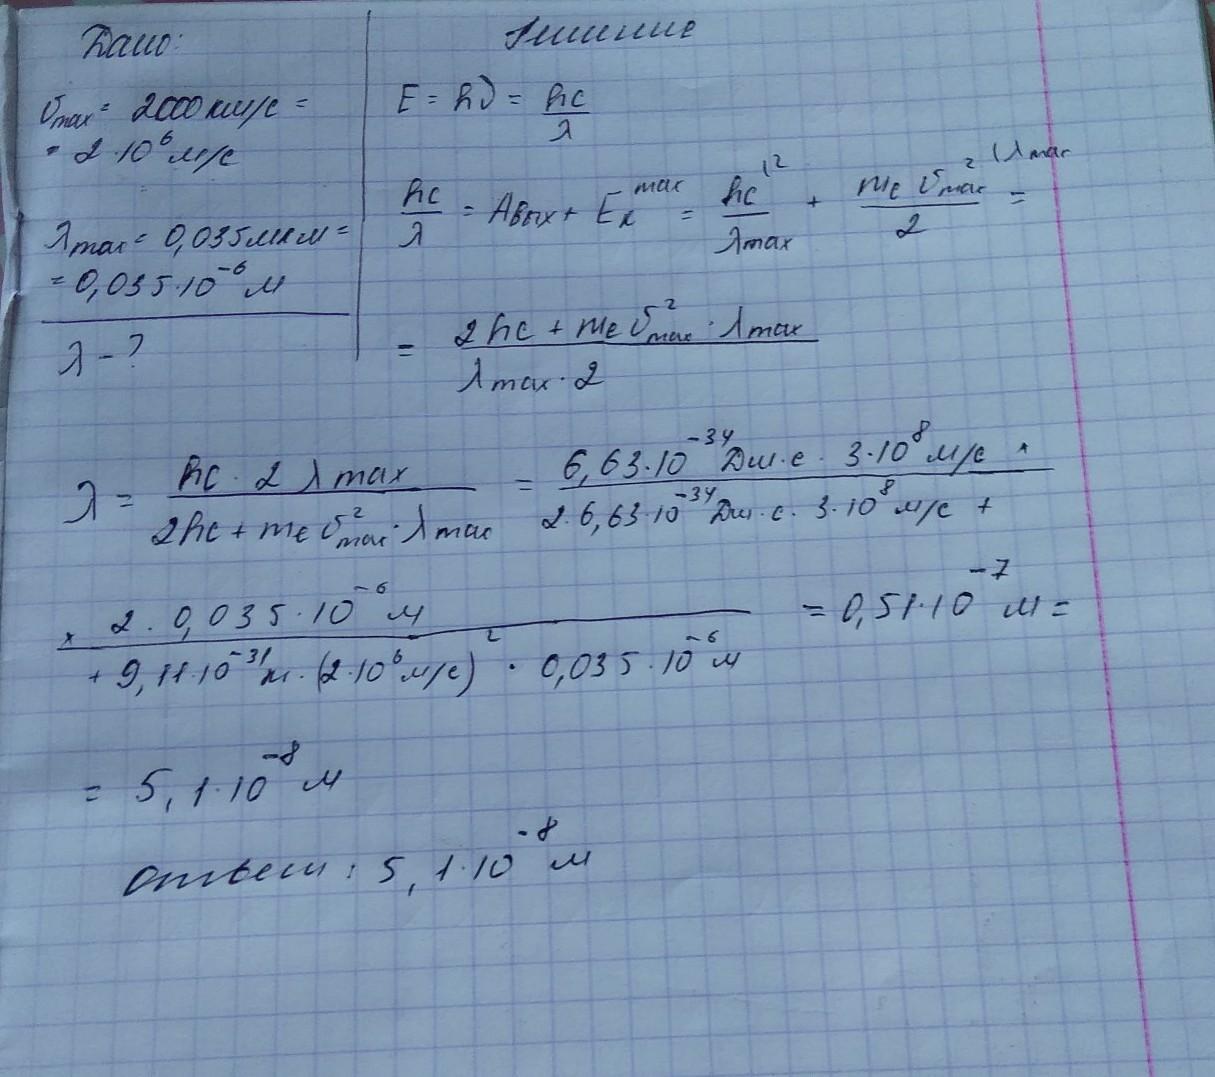 Дано:
υmax = 2000 км/с =
= 2·10⁶ м/с
λmax = 0,035 мкм =
= 0,035·10⁻⁶ м
λ - ?
Решение
E = hν = hc/λ
hc/λ = Aвых + Eк^max = hc^(2/λmax + meυ²max^(λmax/2 =
= (2hc + meυ²max · λmax)/(λmax · 2)
λ = (hc · 2λmax)/(2hc + meυ²max · λmax) = (6,63·10⁻³⁴ Дж·с · 3·10⁸ м/с ×)/(2·6,63·10⁻³⁴ Дж·с · 3·10⁸ м/с +)
(× 2 · 0,035·10⁻⁶ м)/(+ 9,11·10⁻³¹ кг · (2·10⁶ м/с)² · 0,035·10⁻⁶ м) = 0,51·10⁻⁷ м =
= 5,1·10⁻⁸ м
Ответ: 5,1·10⁻⁸ м